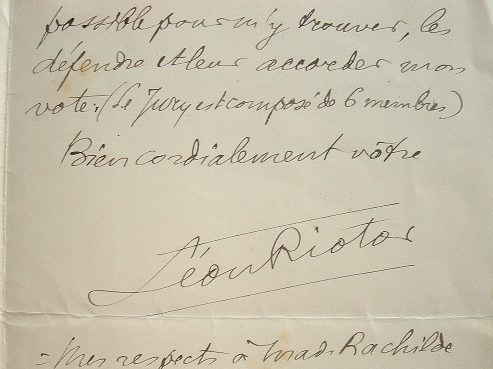 possible pour m'y trouver, les
défendre et leur accorder mon
vote. (Le Jury est composé de 6 membres)
Bien cordialement vôtre
Léon Riotor
= Mes respects à Mad. Rachilde